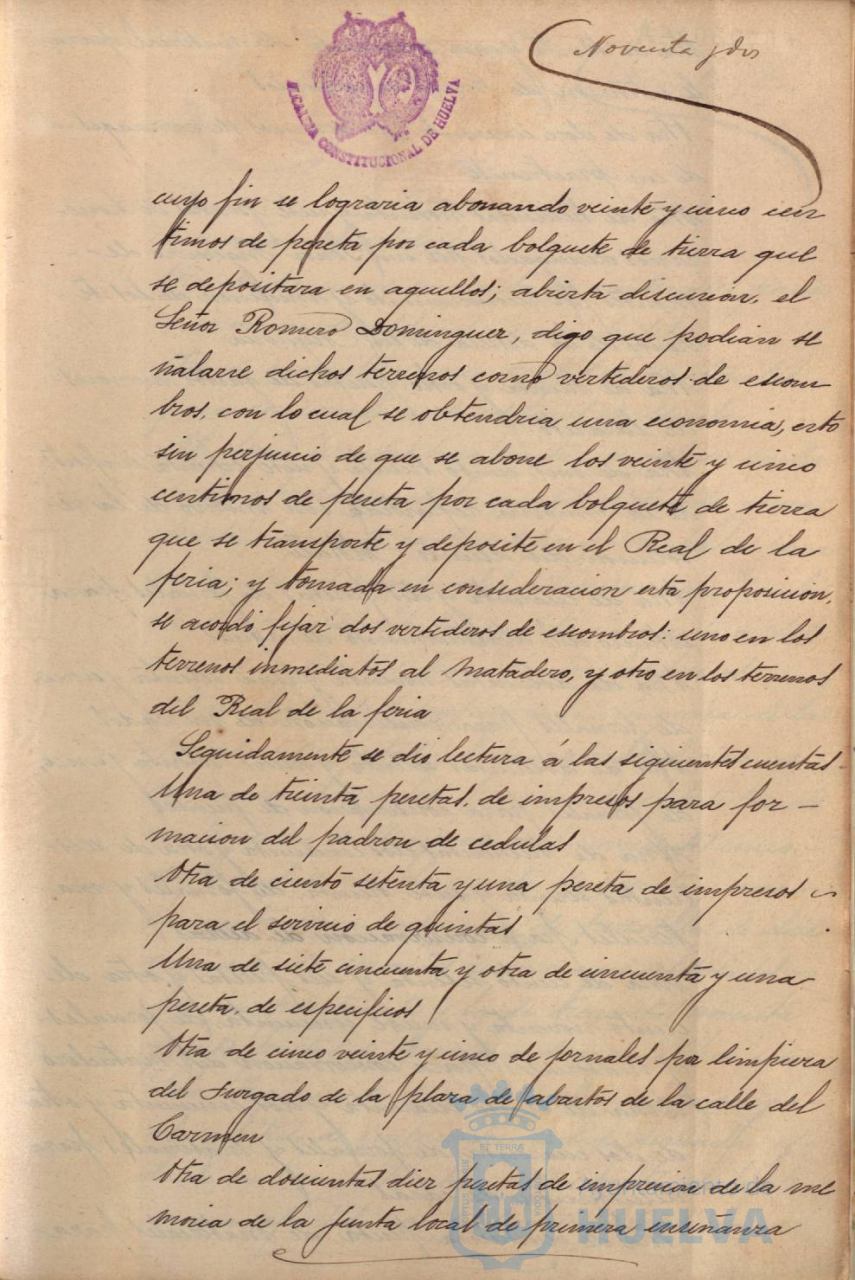 Noventa y dos
ALCALDIA CONSTITUCIONAL DE HUELVA
cuyo fin se lograria abonando veinte y cinco cen
timos de peseta por cada bolquete de tierra que
se depositara en aquellos; abierta discusion, el
Señor Romero Dominguez, digo que podian se
ñalarse dichos terrenos como vertederos de escom
bros, con lo cual se obtendria una economia, esto
sin perjuicio de que se abone los veinte y cinco
centimos de peseta por cada bolquete de tierra
que se transporte y deposite en el Real de la
feria; y tomada en consideracion esta proposicion,
se acordó fijar dos vertederos de escombros: uno en los
terrenos inmediatos al Matadero, y otro en los terrenos
del Real de la feria
Seguidamente se dio lectura á las siguientes cuentas
Una de treinta pesetas, de impresos para for-
macion del padron de cedulas
Otra de ciento setenta y una peseta de impresos
para el servicio de quintas
Una de siete cincuenta y otra de cincuenta y una
peseta, de especificos
Otra de cinco veinte y cinco de jornales por limpieza
del Juzgado de la plaza de abastos de la calle del
Carmen
Otra de doscientas diez pesetas de impresion de la me
moria de la Junta local de primera enseñanza
HUELVA